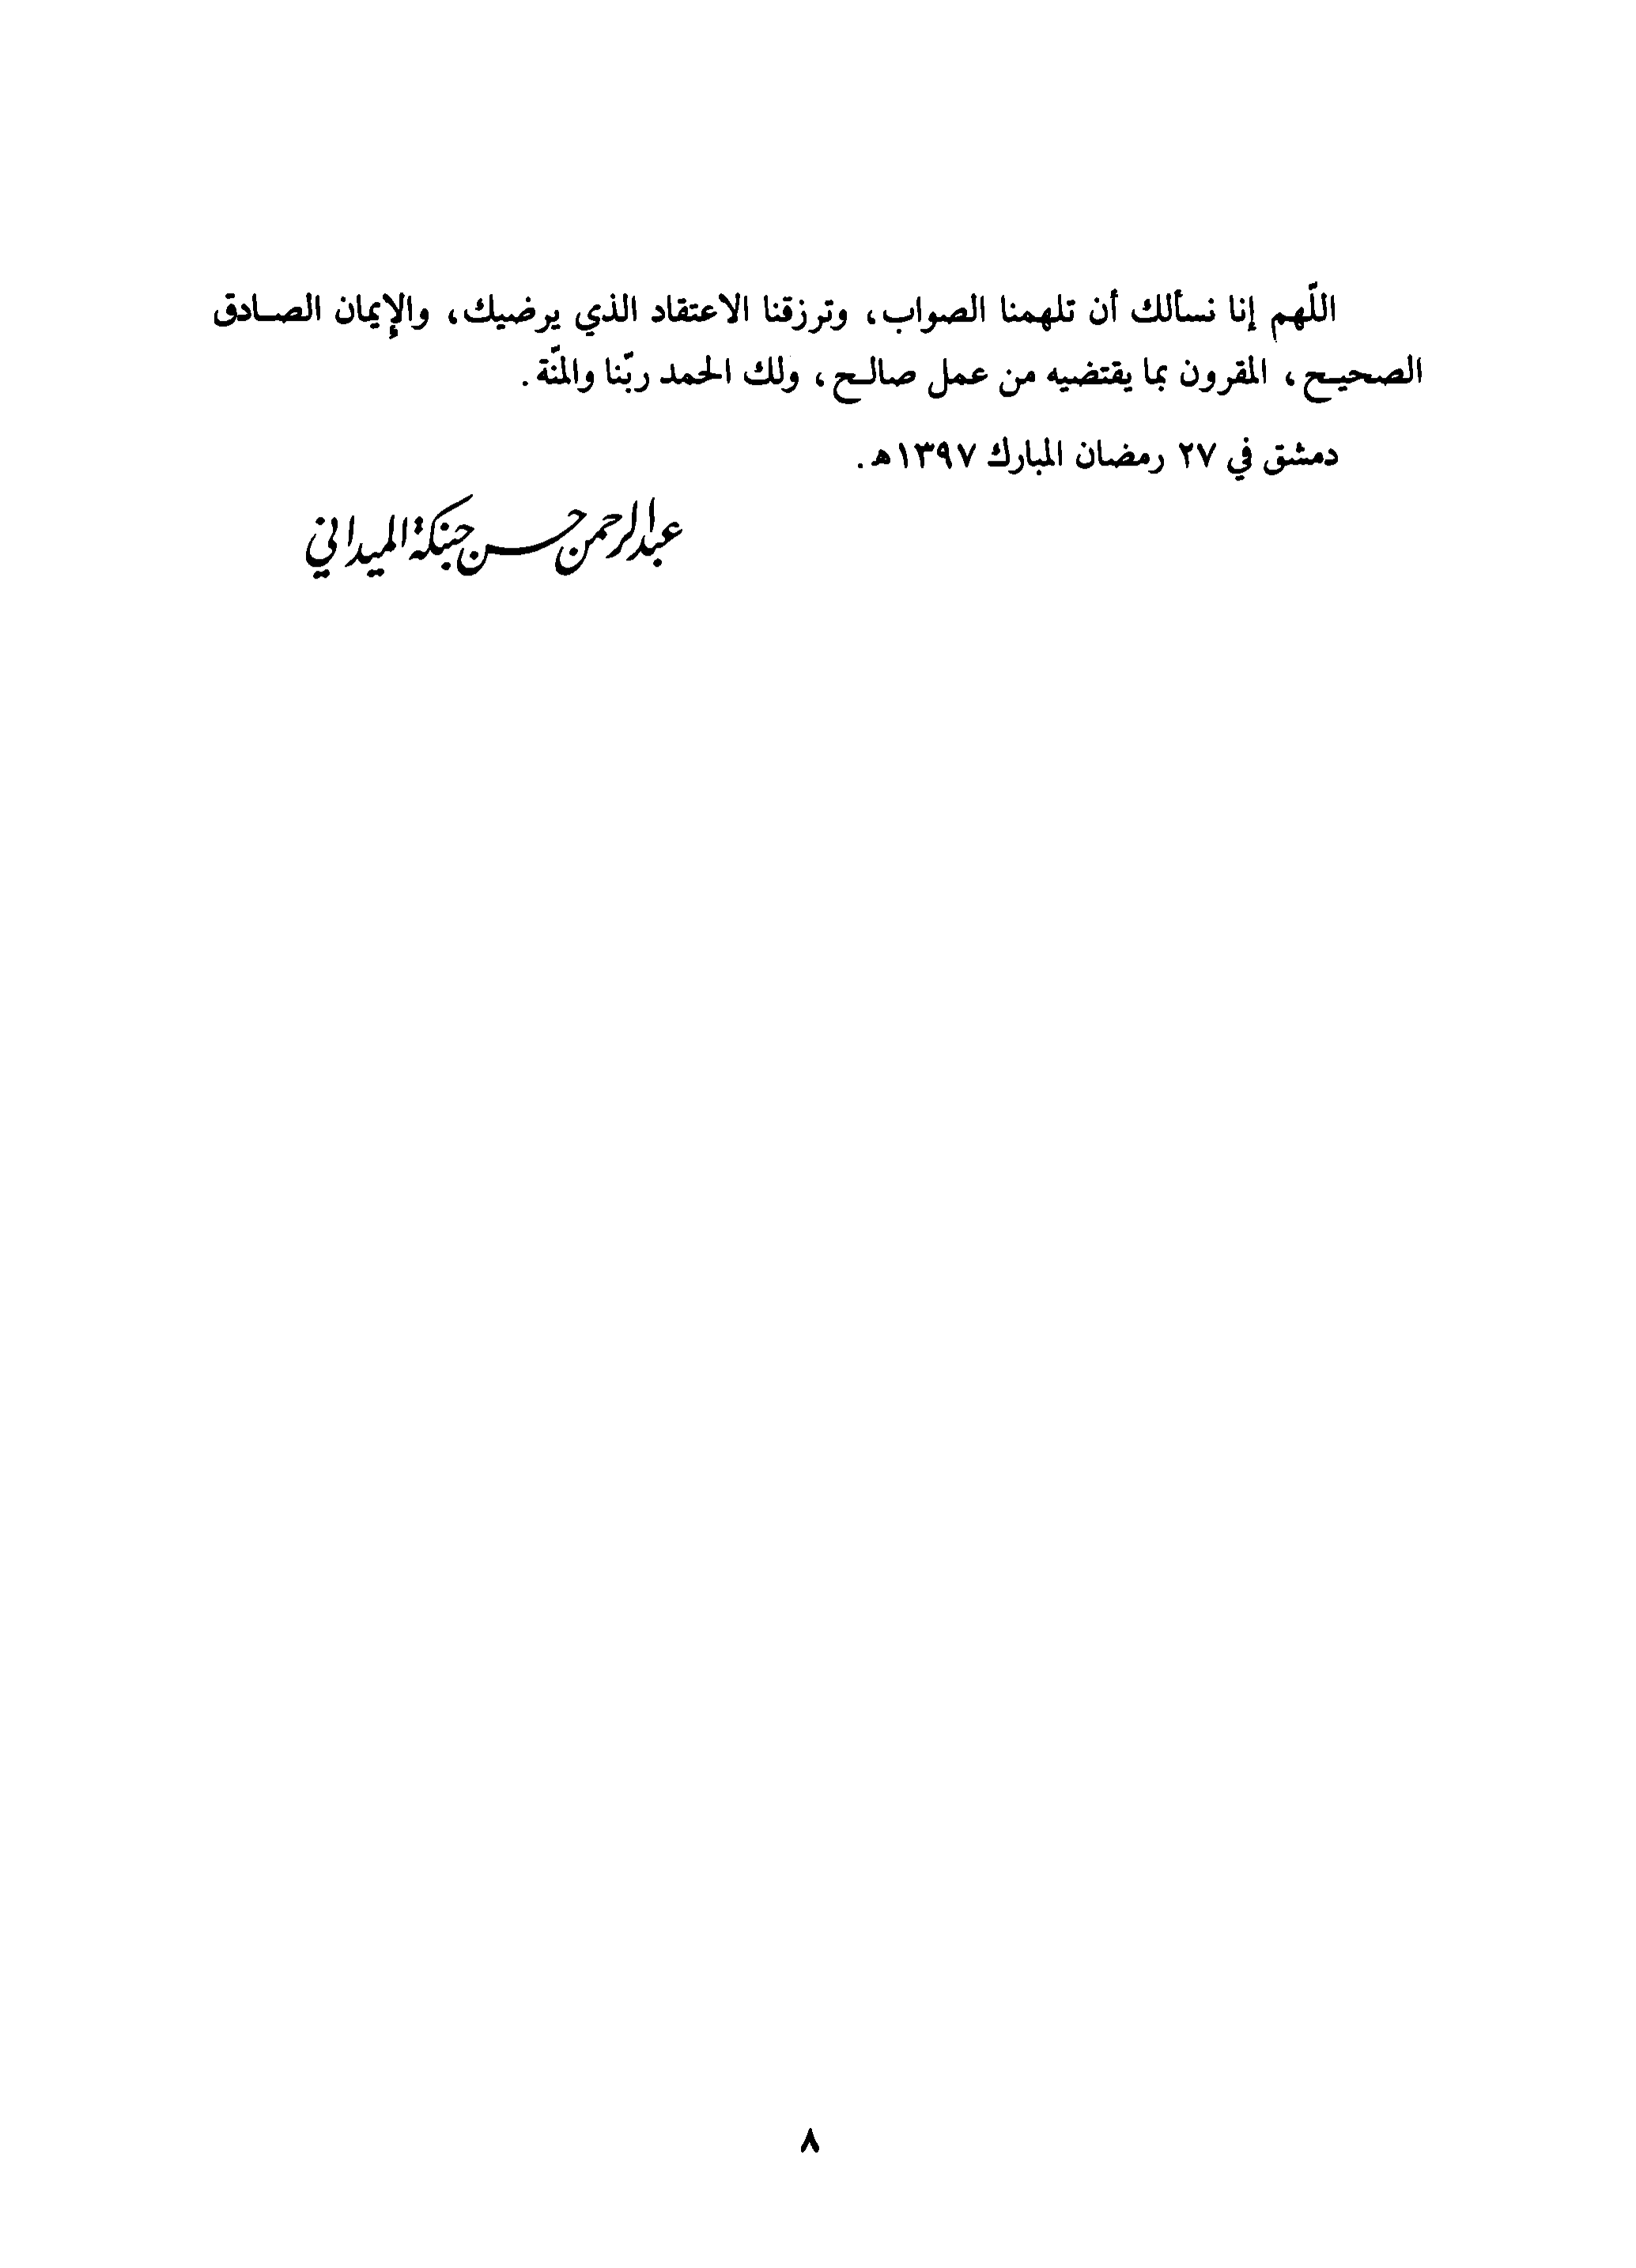 اللّهم إنا نسألك أن تلهمنا الصواب، وترزقنا الاعتقاد الذي يرضيك، والإيمان الصادق
الصحيح، المقرون بما يقتضيه من عمل صالح، ولك الحمد ربّنا والمنّة.
دمشق في ٢٧ رمضان المبارك ١٣٩٧هـ.
عبد الرحمن حسن حبنكة الميداني
٨